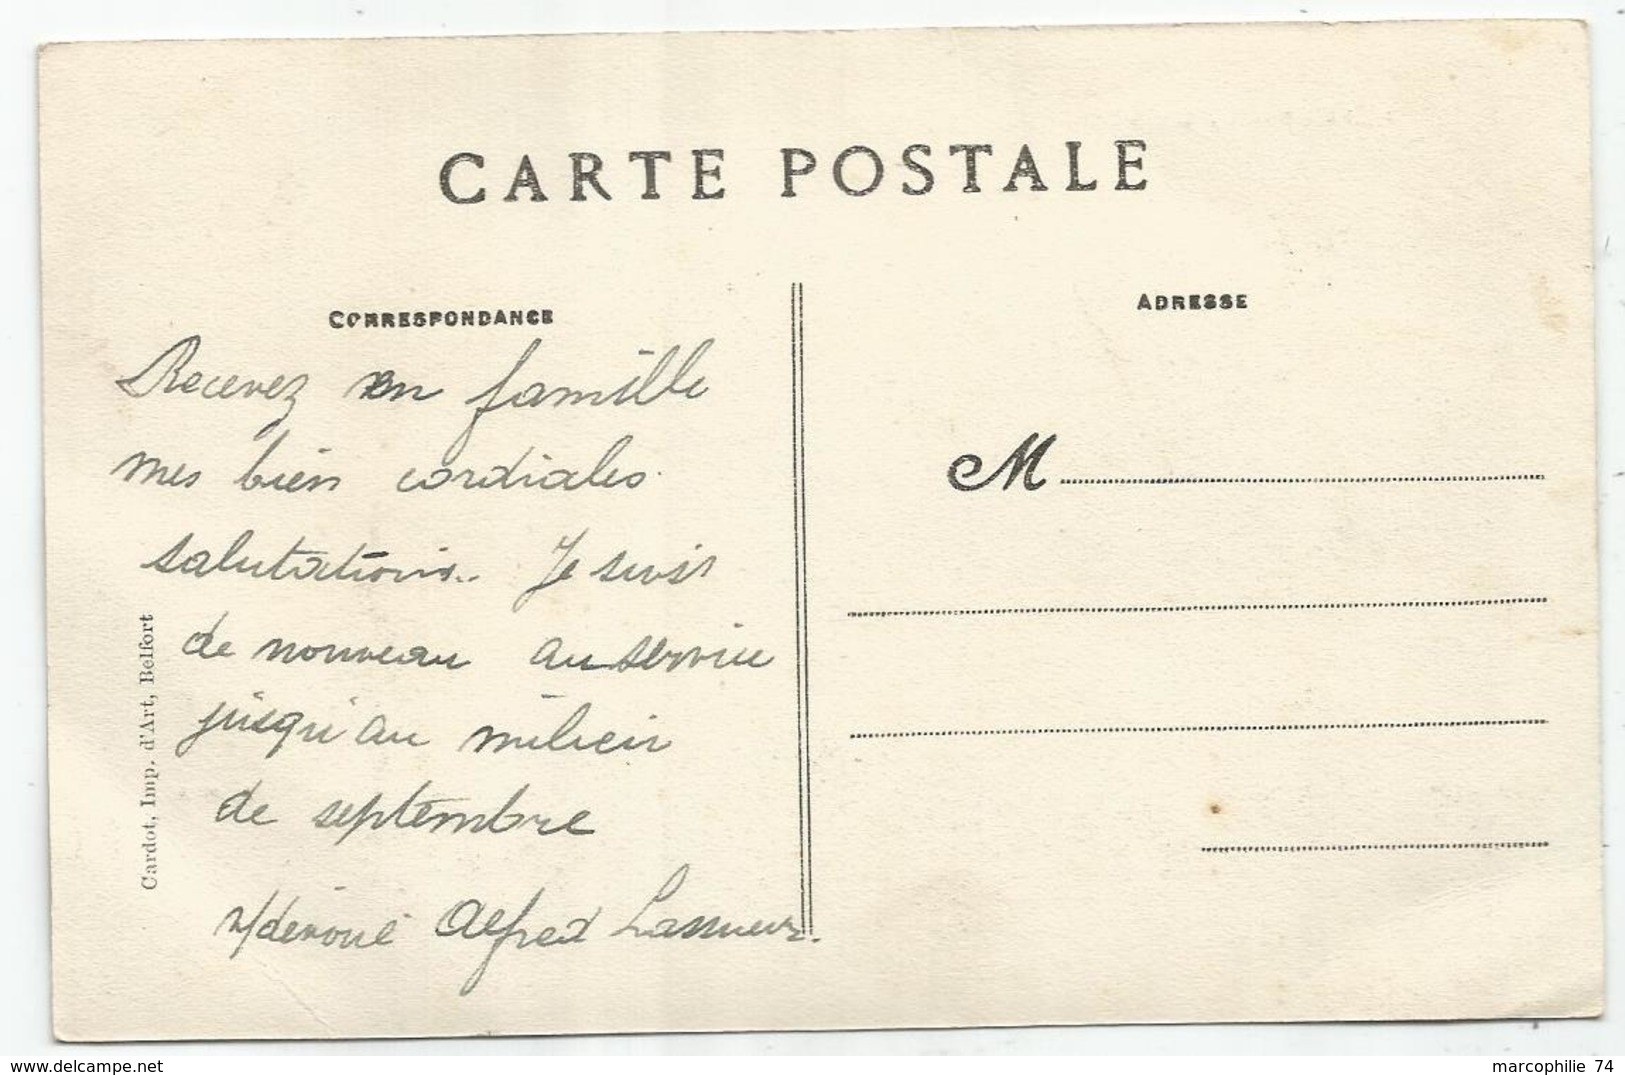 CARTE POSTALE
CORRESPONDANCE
ADRESSE
Recevez en famille
mes bien cordiales
salutations. Je suis
de nouveau au service
jusqu'au milieu
de septembre
v/dévoué Alfred
M
Cardot, Imp. d'Art, Belfort
delcampe.net
marcophilie 74